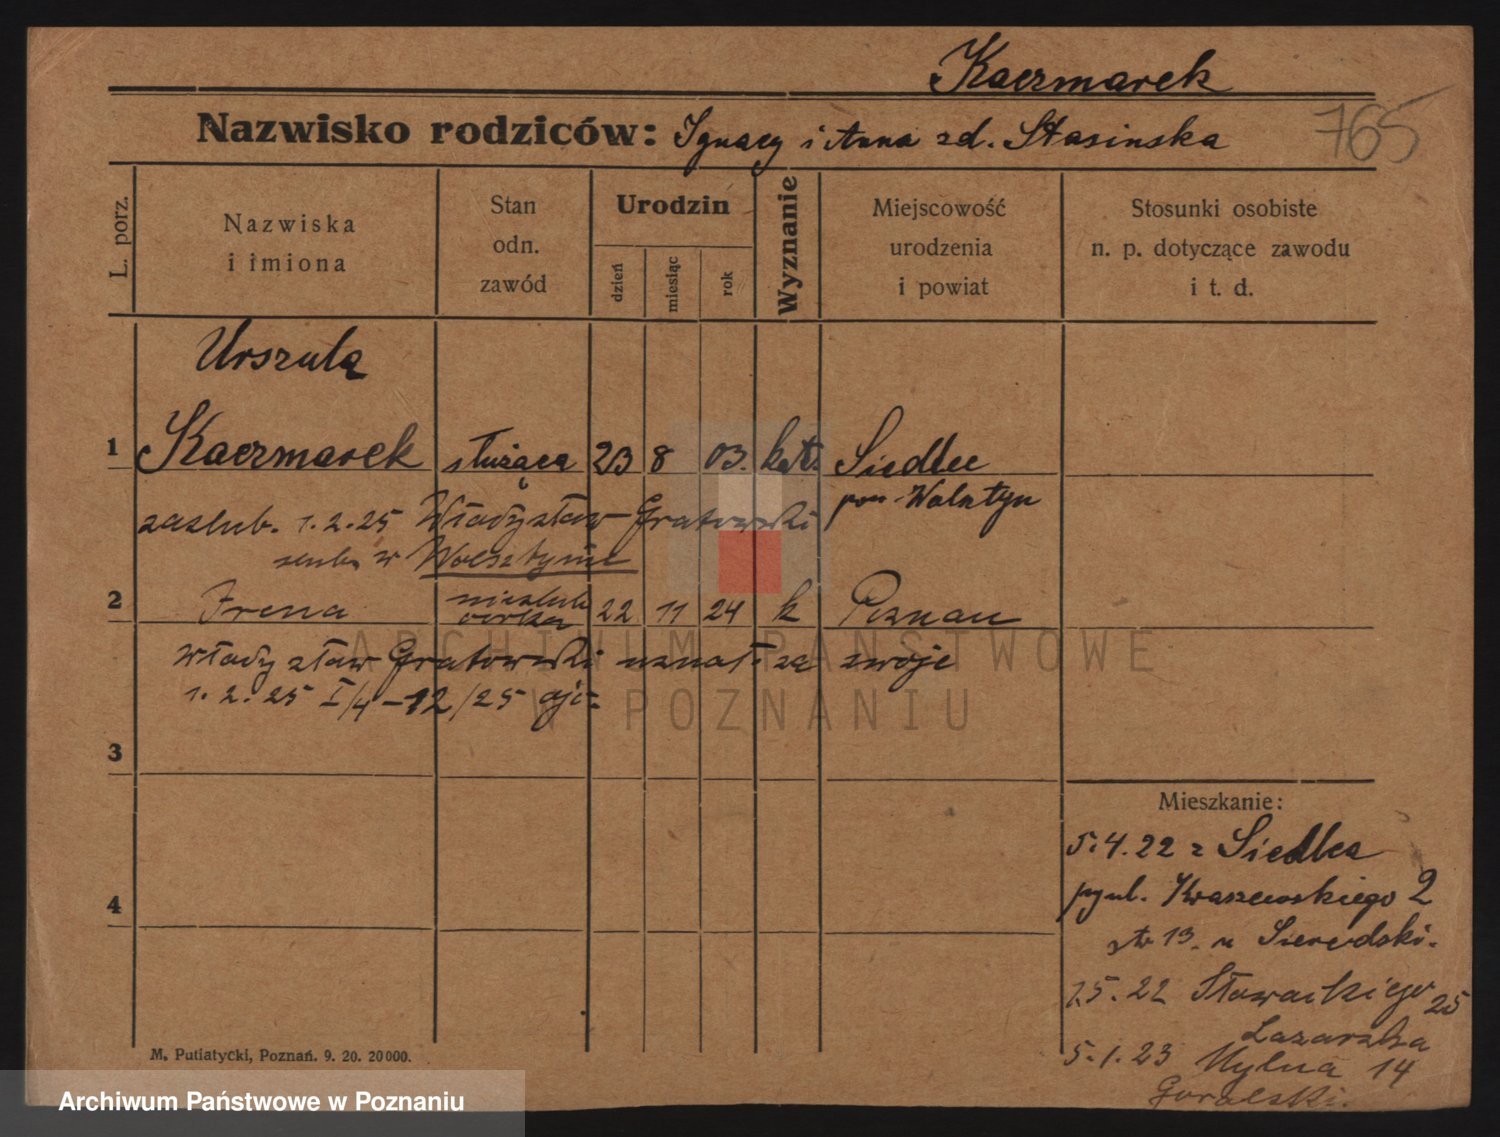 Kaczmarek
Nazwisko rodziców: Ignacy i Anna zd. Stasinska
765
L. porz.
Nazwiska
i imiona
Stan
odn.
zawód
Urodzin
dzień
miesiąc
rok
Wyznanie
Miejscowość
urodzenia
i powiat
Stosunki osobiste
n. p. dotyczące zawodu
i t. d.
Urszula
1 Kaczmarek służąca 23 8 03. kat. Siedlec
pow. Wolsztyn
zaslub. 1.2.25 Władysław Gratowski
w Wolsztynie
2 Irena nieślub córka 22 11 24 k Poznan
Władysław Gratowski uznał za swoje
1.2.25 I/4-12/25
3
4
Mieszkanie:
5.4.22 z Siedlca
Kraszewskiego 2
13. u
1.5.22 Słowackiego 25
Lazarska
5.1.23 Mylna 14
Goralski.
M. Putiatycki, Poznań. 9. 20. 20000.
ARCHIWUM PAŃSTWOWE
W POZNANIU
Archiwum Państwowe w Poznaniu